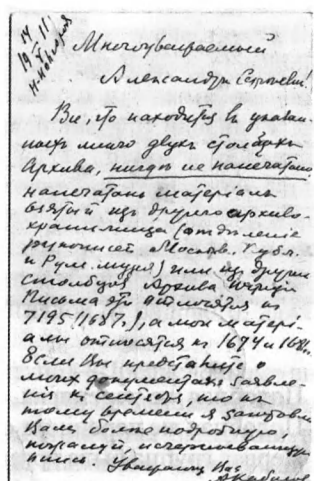 14 11
19 V
Многоуважаемый
Александръ Сергѣевичъ!
Все, что находится въ указан-
ныхъ мною двухъ столбцахъ
Архива, нигдѣ не напечатано,
напечатанъ матеріалъ
взятый изъ другого архиво-
хранилища (отдѣленіе
рукописей Москов. Публ.
и Рум. музея) или изъ другихъ
столбцовъ Архива
Письма эти относятся къ
7195 (1687 г.), а мои матері-
алы относятся къ 1674 и 1681 г.
Если Вы представите о
моихъ документахъ заявле-
ніе къ сентябрю, то къ
тому времени я заготовлю
Вамъ болѣе подробную,
пожалуй, исчерпывающую
опись. Уважающій Васъ